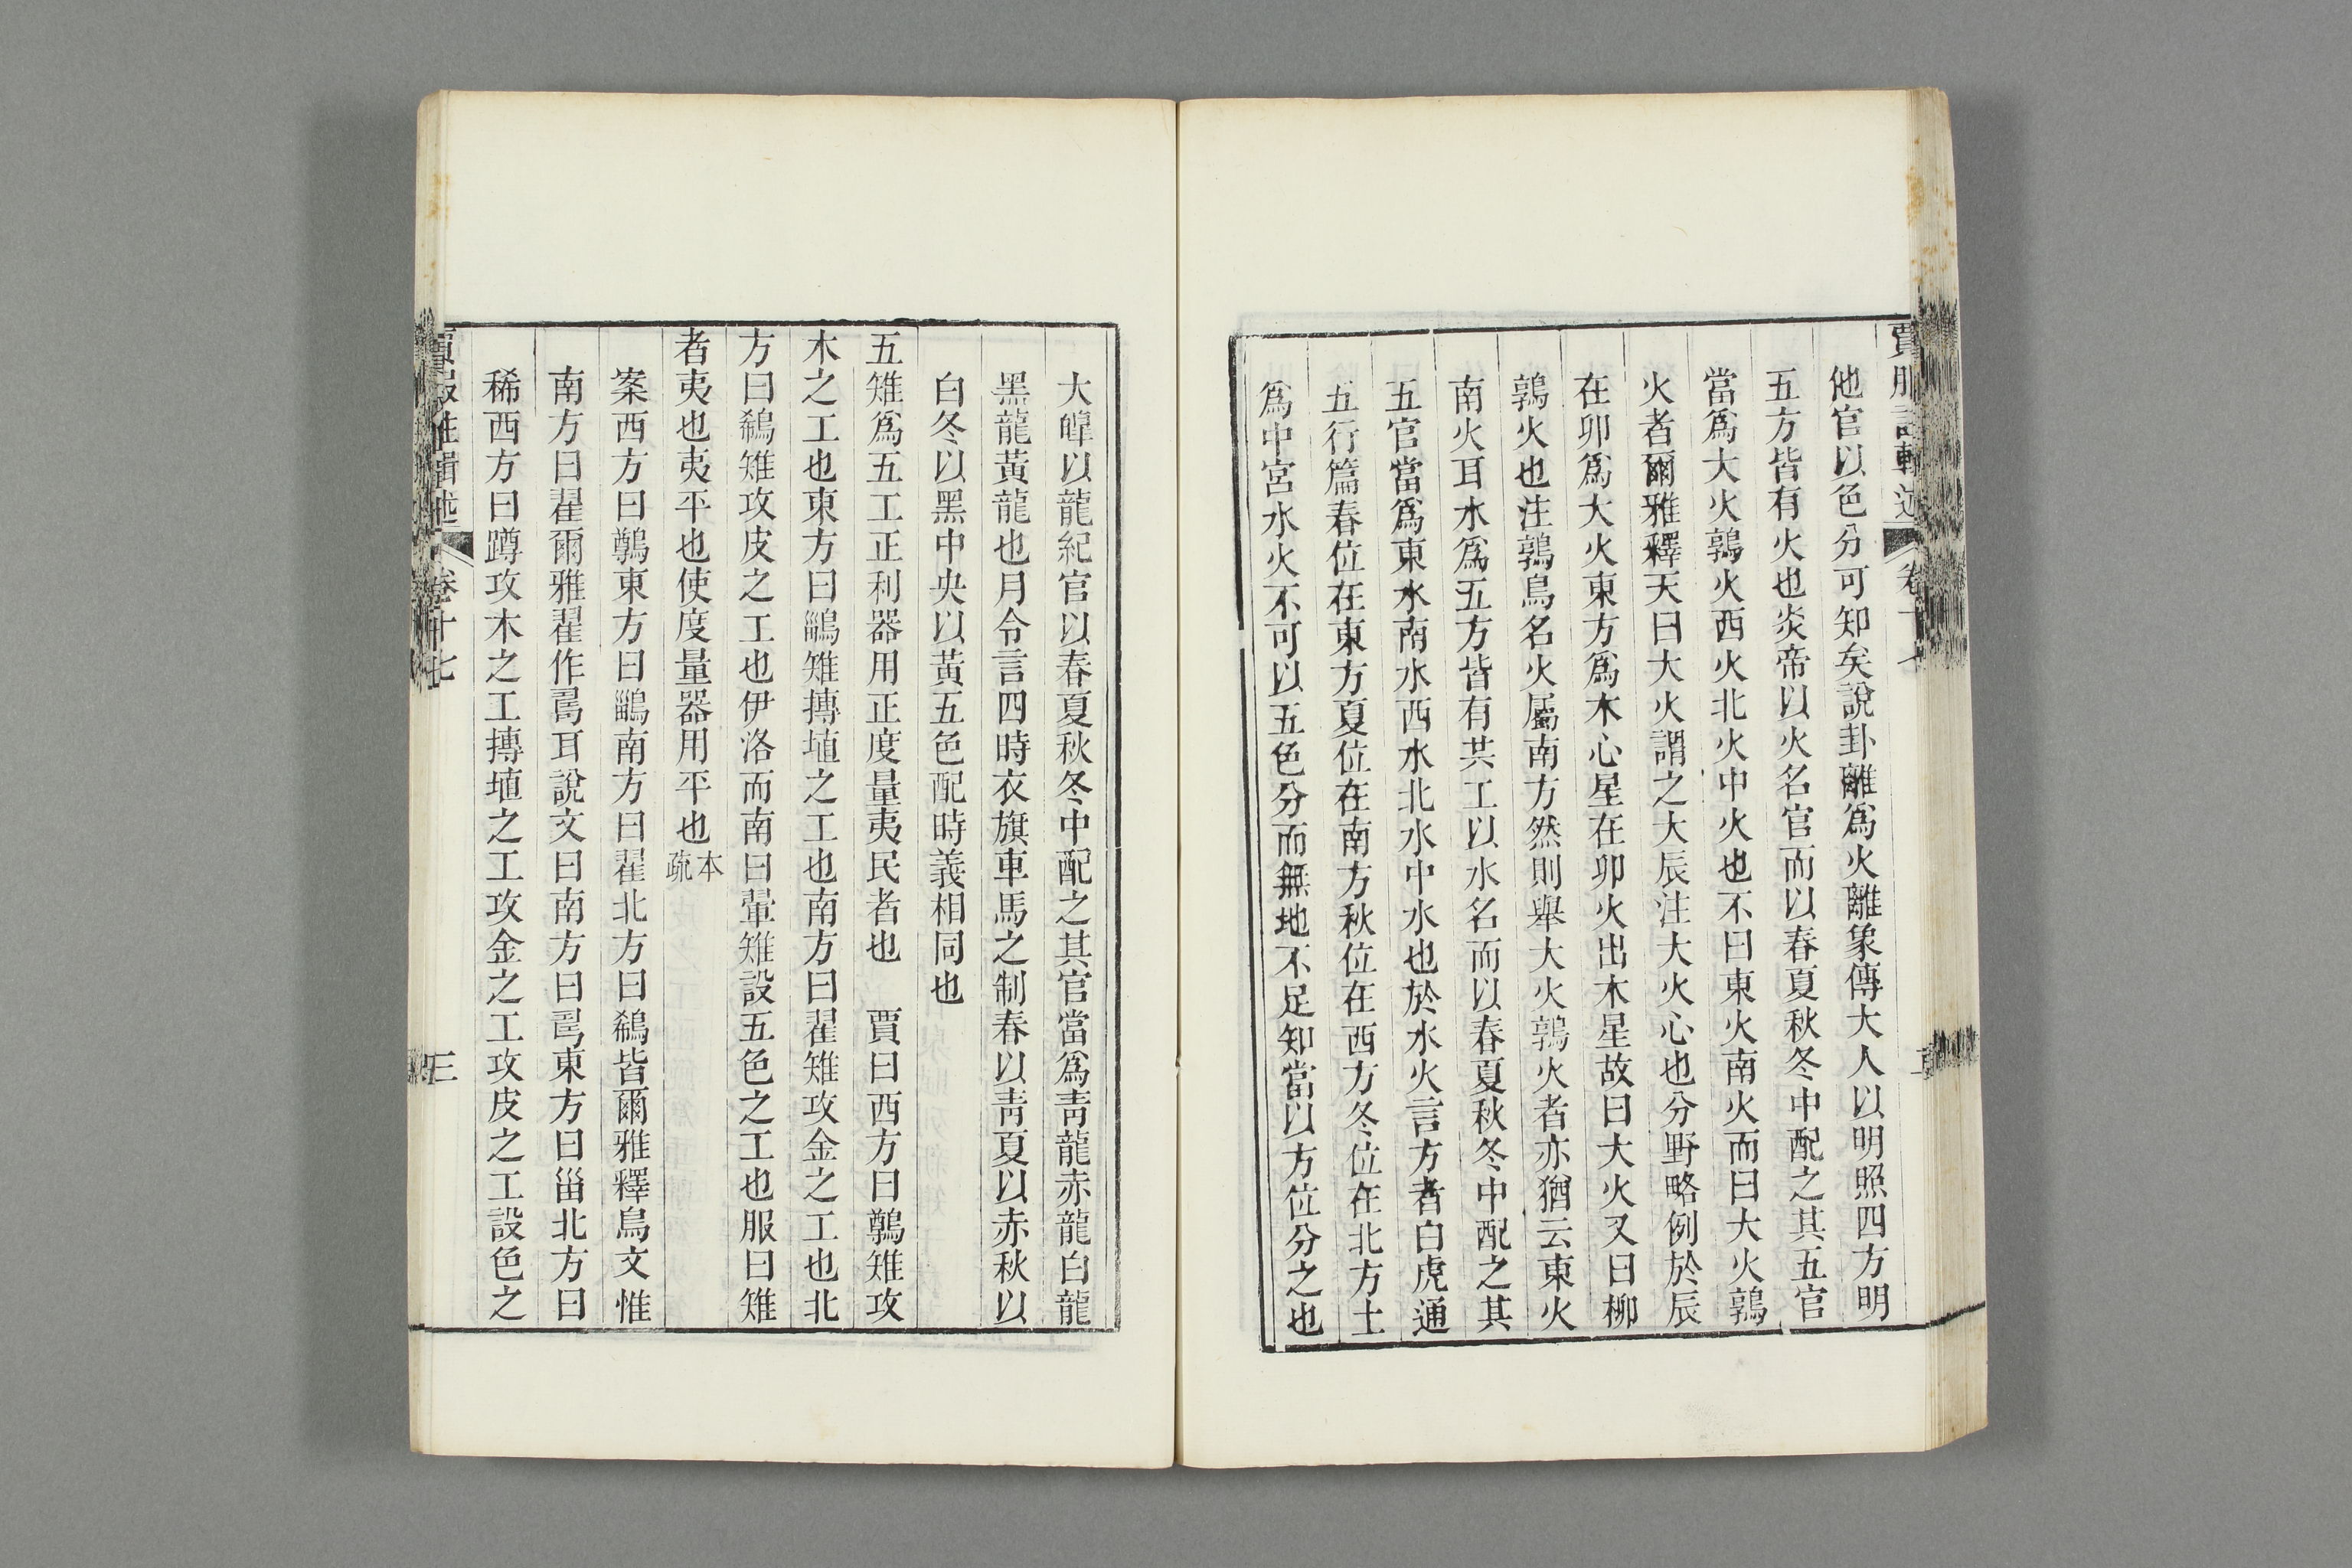 他官以色分可知矣說卦離爲火離象傳大人以明照四方明
五方皆有火也炎帝以火名官而以春夏秋冬中配之其五官
當爲大火鶉火西火北火中火也不曰東火南火而曰大火鶉
火者爾雅釋天曰大火謂之大辰注大火心也分野略例於辰
在卯爲大火東方爲木心星在卯火出木星故曰大火又曰柳
鶉火也注鶉鳥名火屬南方然則舉大火鶉火者亦猶云東火
南火耳水爲五方皆有共工以水名而以春夏秋冬中配之其
五官當爲東水南水西水北水中水也於水火言方者白虎通
五行篇春位在東方夏位在南方秋位在西方冬位在北方土
爲中宮水火不可以五色分而無地不足知當以方位分之也
大皞以龍紀官以春夏秋冬中配之其官當爲靑龍赤龍白龍
黑龍黃龍也月令言四時衣旗車馬之制春以靑夏以赤秋以
白冬以黑中央以黃五色配時義相同也
五雉爲五工正利器用正度量夷民者也　賈曰西方曰鷷雉攻
木之工也東方曰鶅雉搏埴之工也南方曰翟雉攻金之工也北
方曰鵗雉攻皮之工也伊洛而南曰翬雉設五色之工也服曰雉
者夷也夷平也使度量器用平也本疏
案西方曰鷷東方曰鶅南方曰翟北方曰鵗皆爾雅釋鳥文惟
南方曰翟爾雅翟作𠷎耳說文曰南方曰𠷎東方曰甾北方曰
稀西方曰蹲攻木之工搏埴之工攻金之工攻皮之工設色之
賈服注輯述　卷十七　三